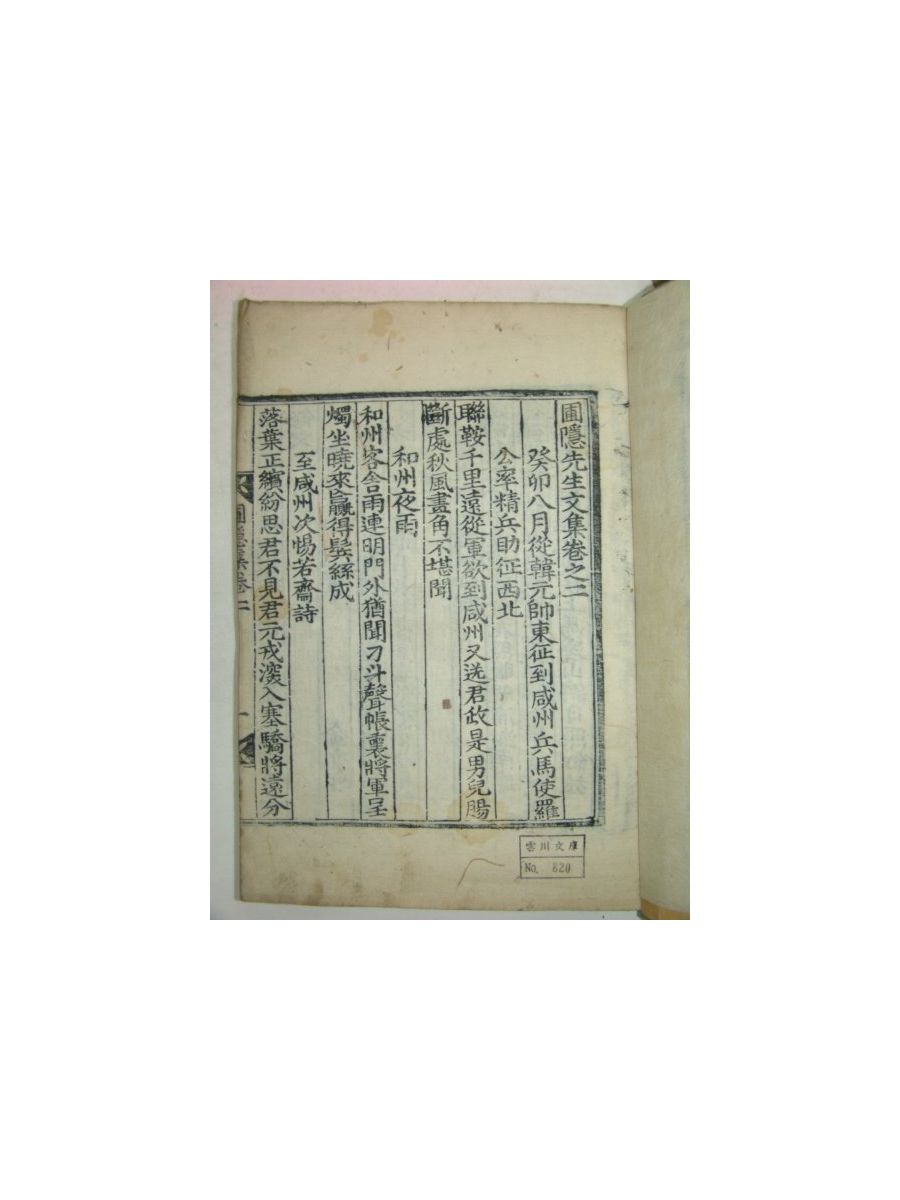 圃隱先生文集卷之二
癸卯八月從韓元帥東征到咸州兵馬使羅
公率精兵助征西北
聯鞍千里遠從軍欲到咸州又送君政是男兒腸
斷處秋風畫角不堪聞
和州夜雨
和州客舍雨連明門外猶聞刀斗聲帳裏將軍呈
燭坐曉來贏得鬂絲成
至咸州次惕若齋詩
落葉正繽紛思君不見君元戎深入塞驕將遠分
圃隱集卷二
一
雲川文庫
No. 820